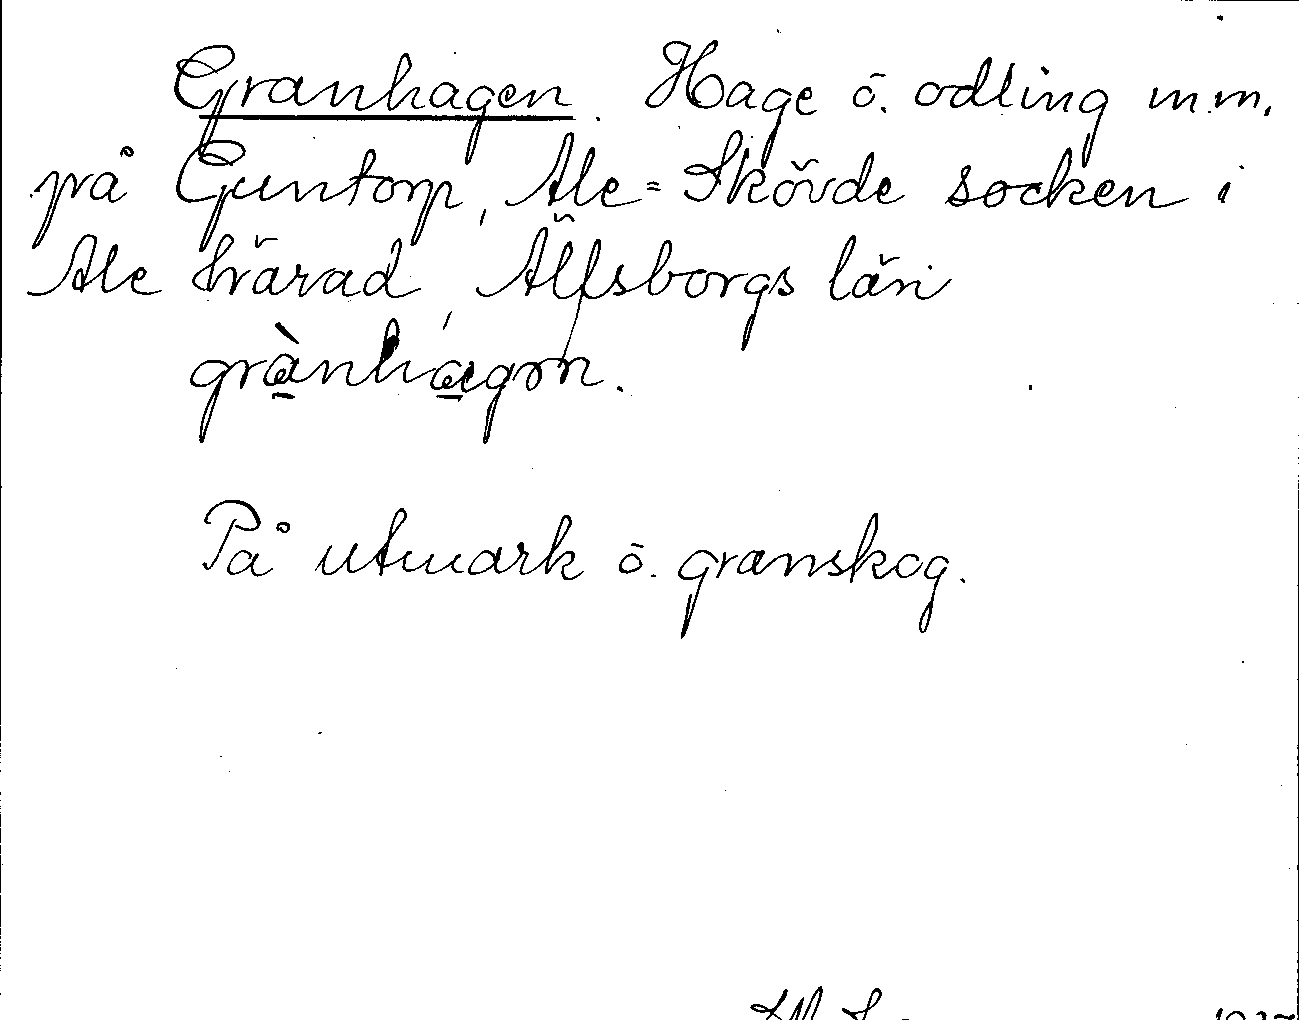 Granhagen. Hage o. odling m.m.
på Guntorp, Ale-Skövde socken i
Ale härad, Älfsborgs län
grànhagon.
På utmark o. granskog.